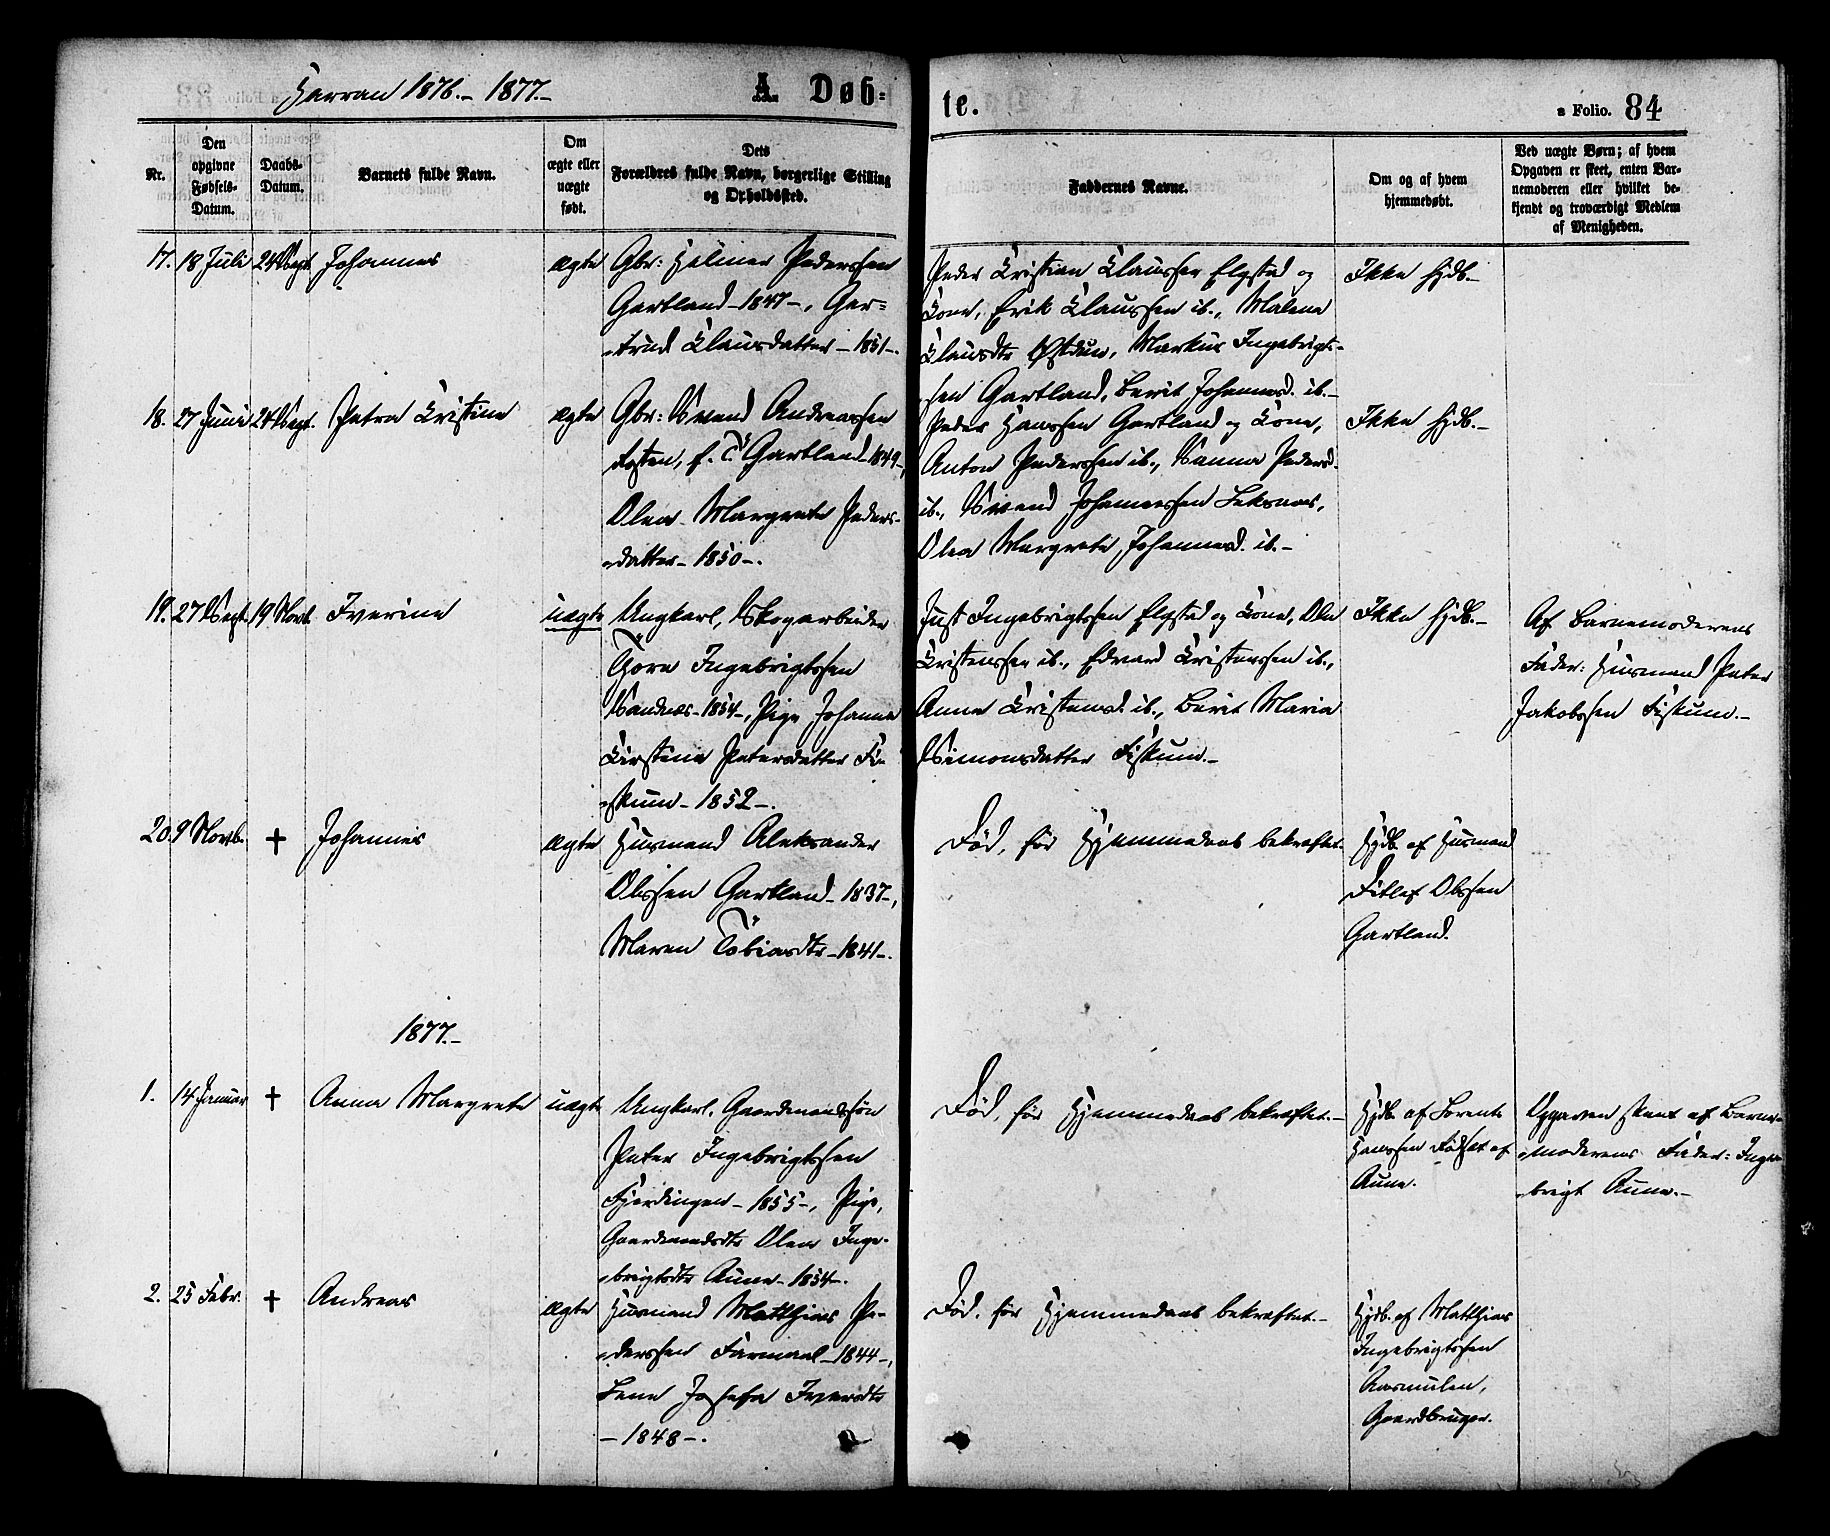 Harran 1876.- 1877.-
A. Døb-
te.
a Folio. 84
Nr.
Den opgivne Fødsels-Datum.
Daabs-Datum.
Barnets fulde Navn.
Om ægte eller uægte født.
Dets Forældres fulde Navn, borgerlige Stilling og Opholdssted.
Faddernes Navne.
Om og af hvem hjemmedøbt.
Ved uægte Børn; af hvem Opgaven er skeet, enten Barnemoderen eller hvilket bekjendt og troværdigt Medlem af Menigheden.
17. 18 Juli 24 Sept. Johannes
ægte
Gbr: Hilmer Pederssen
Gartland - 1847 -, Ger-
-trud Clausdatter - 1851 -.
Peder Cristian Claussen Elgstad og
Cone, Erik Claussen ib., Malena
Clausdtr Østdun, Markus Ingebrigts-
-sen Gartland, Berit Johannesd. ib.-
Ikke hjdb.-
18. 27 Juni 24 Sept. Petra Cristine
ægte
Gbr: Svend Andreassen
Fosten, f. T. Gartland - 1849 -,
Olea Margrete Peders-
-datter - 1850 -.
Peder Hanssen Gartland og Cone,
Anton Pederssen ib., Sanna Pedersd.
ib., Svend Johannessen Leksaas,
Olea Margrete Johannesd. ib.-
Ikke hjdb.-
19. 27 Sept. 19 Novb. Iverine
uægte
Ungkarl, Skogarbeider
Tore Ingebrigtssen
Sandnes - 1854 -, Pige Johanna
Cirstina Petersdatter Fi-
-skum - 1852 -.
Just Ingebrigtssen Elgstad og Cone, Ole
Cristenssen ib., Edvard Cristenssen ib.,
Anne Cristensd. ib., Berit Maria
Simonsdatter Fiskum.-
Ikke hjdb.-
Af Barnemoderens
Fader: Husmand Peter
Jakobssen Fiskum.-
20. 9 Novb. † Johannes
ægte
Husmand Aleksander
Olssen Gartland - 1837 -,
Maren Tobiasdtr - 1841 -.
Død, før Hjemmedaab bekræftet.
Hjdb. af Husmand
Ditlef Olssen
Gartland.
1877.-
1. 14 Januar † Anna Margrete
uægte
Ungkarl, Gaardmandssøn
Peter Ingebrigtssen
Fjerdingen - 1855 -, Pige,
Gaardmandsdtr Olea Inge-
-brigtsdtr Aune - 1854 -.
Død, før Hjemmedaab bekræftet.-
Hjdb. af Lorents
Hanssen Fodset af
Aune.
Opgaven skeet af Barne-
-moderens Fader: Inge-
-brigt Aune.-
2. 25 Febr. † Andreas
ægte
Husmand Matthias Pe-
-derssen Formaal - 1844 -,
Lene Josefa Iversdtr
- 1848 -.
Død, før Hjemmedaab bekræftet.-
Hjdb. af Matthias
Ingebrigtssen
Aasmulen,
Gaardbruger.